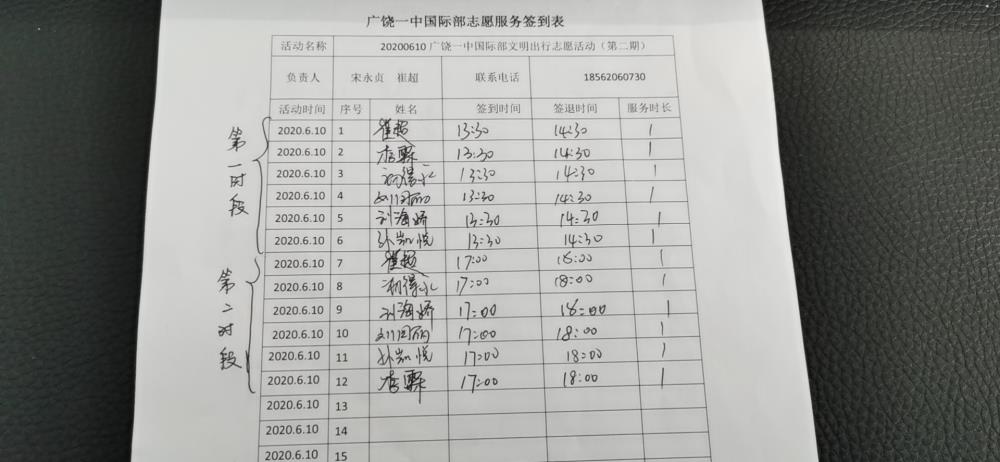 广饶一中国际部志愿服务签到表
活动名称 20200610 广饶一中国际部文明出行志愿活动（第二期）
负责人 宋永贞 崔超 联系电话 18562060730
活动时间 序号 姓名 签到时间 签退时间 服务时长
第一时段
2020.6.10 1 崔超 13:30 14:30 1
2020.6.10 2 13:30 14:30 1
2020.6.10 3 13:30 14:30 1
2020.6.10 4 13:30 14:30 1
2020.6.10 5 刘海娇 13:30 14:30 1
2020.6.10 6 孙凯悦 13:30 14:30 1
第二时段
2020.6.10 7 崔超 17:00 18:00 1
2020.6.10 8 17:00 18:00 1
2020.6.10 9 刘海娇 17:00 18:00 1
2020.6.10 10 17:00 18:00 1
2020.6.10 11 孙凯悦 17:00 18:00 1
2020.6.10 12 17:00 18:00 1
2020.6.10 13
2020.6.10 14
2020.6.10 15